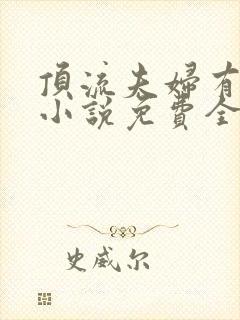 頂流夫婦有
小說免費全
史威尔